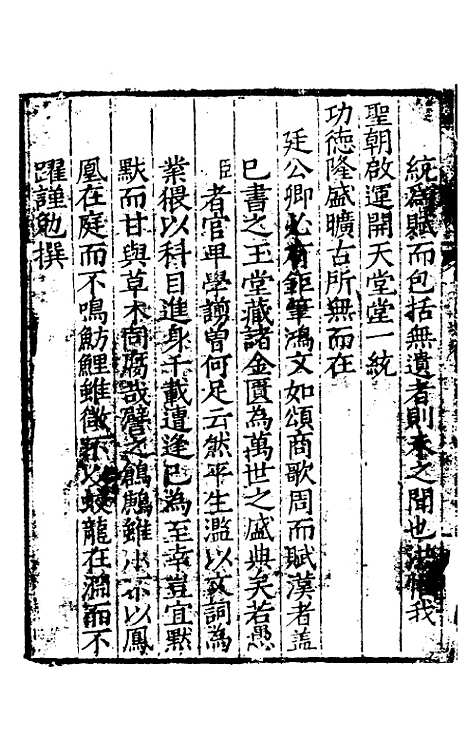 統爲賦而包括無遺者則未之聞也洪惟我
聖朝啟運開天堂堂一統
功徳隆盛曠古所無而在
廷公卿必有鉅筆鴻文如頌商歌周而賦漢者盖
巳書之玉堂藏諸金匱為萬世之盛典矣若愚
臣者官卑學謭曽何足云然平生濫以文詞為
業猥以科目進身千載遭逢巳為至幸豈宜黙
默而甘與草木同腐哉譬之鷦鷯雖小不以鳳
凰在庭而不鳴魴鯉雖微不以蛟龍在淵而不
躍謹勉撰